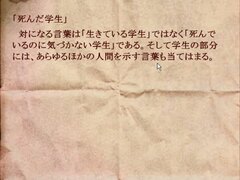 「死んだ学生」
　対になる言葉は「生きている学生」ではなく「死んで
いるのに気づかない学生」である。そして学生の部分
には、あらゆるほかの人間を示す言葉も当てはまる。